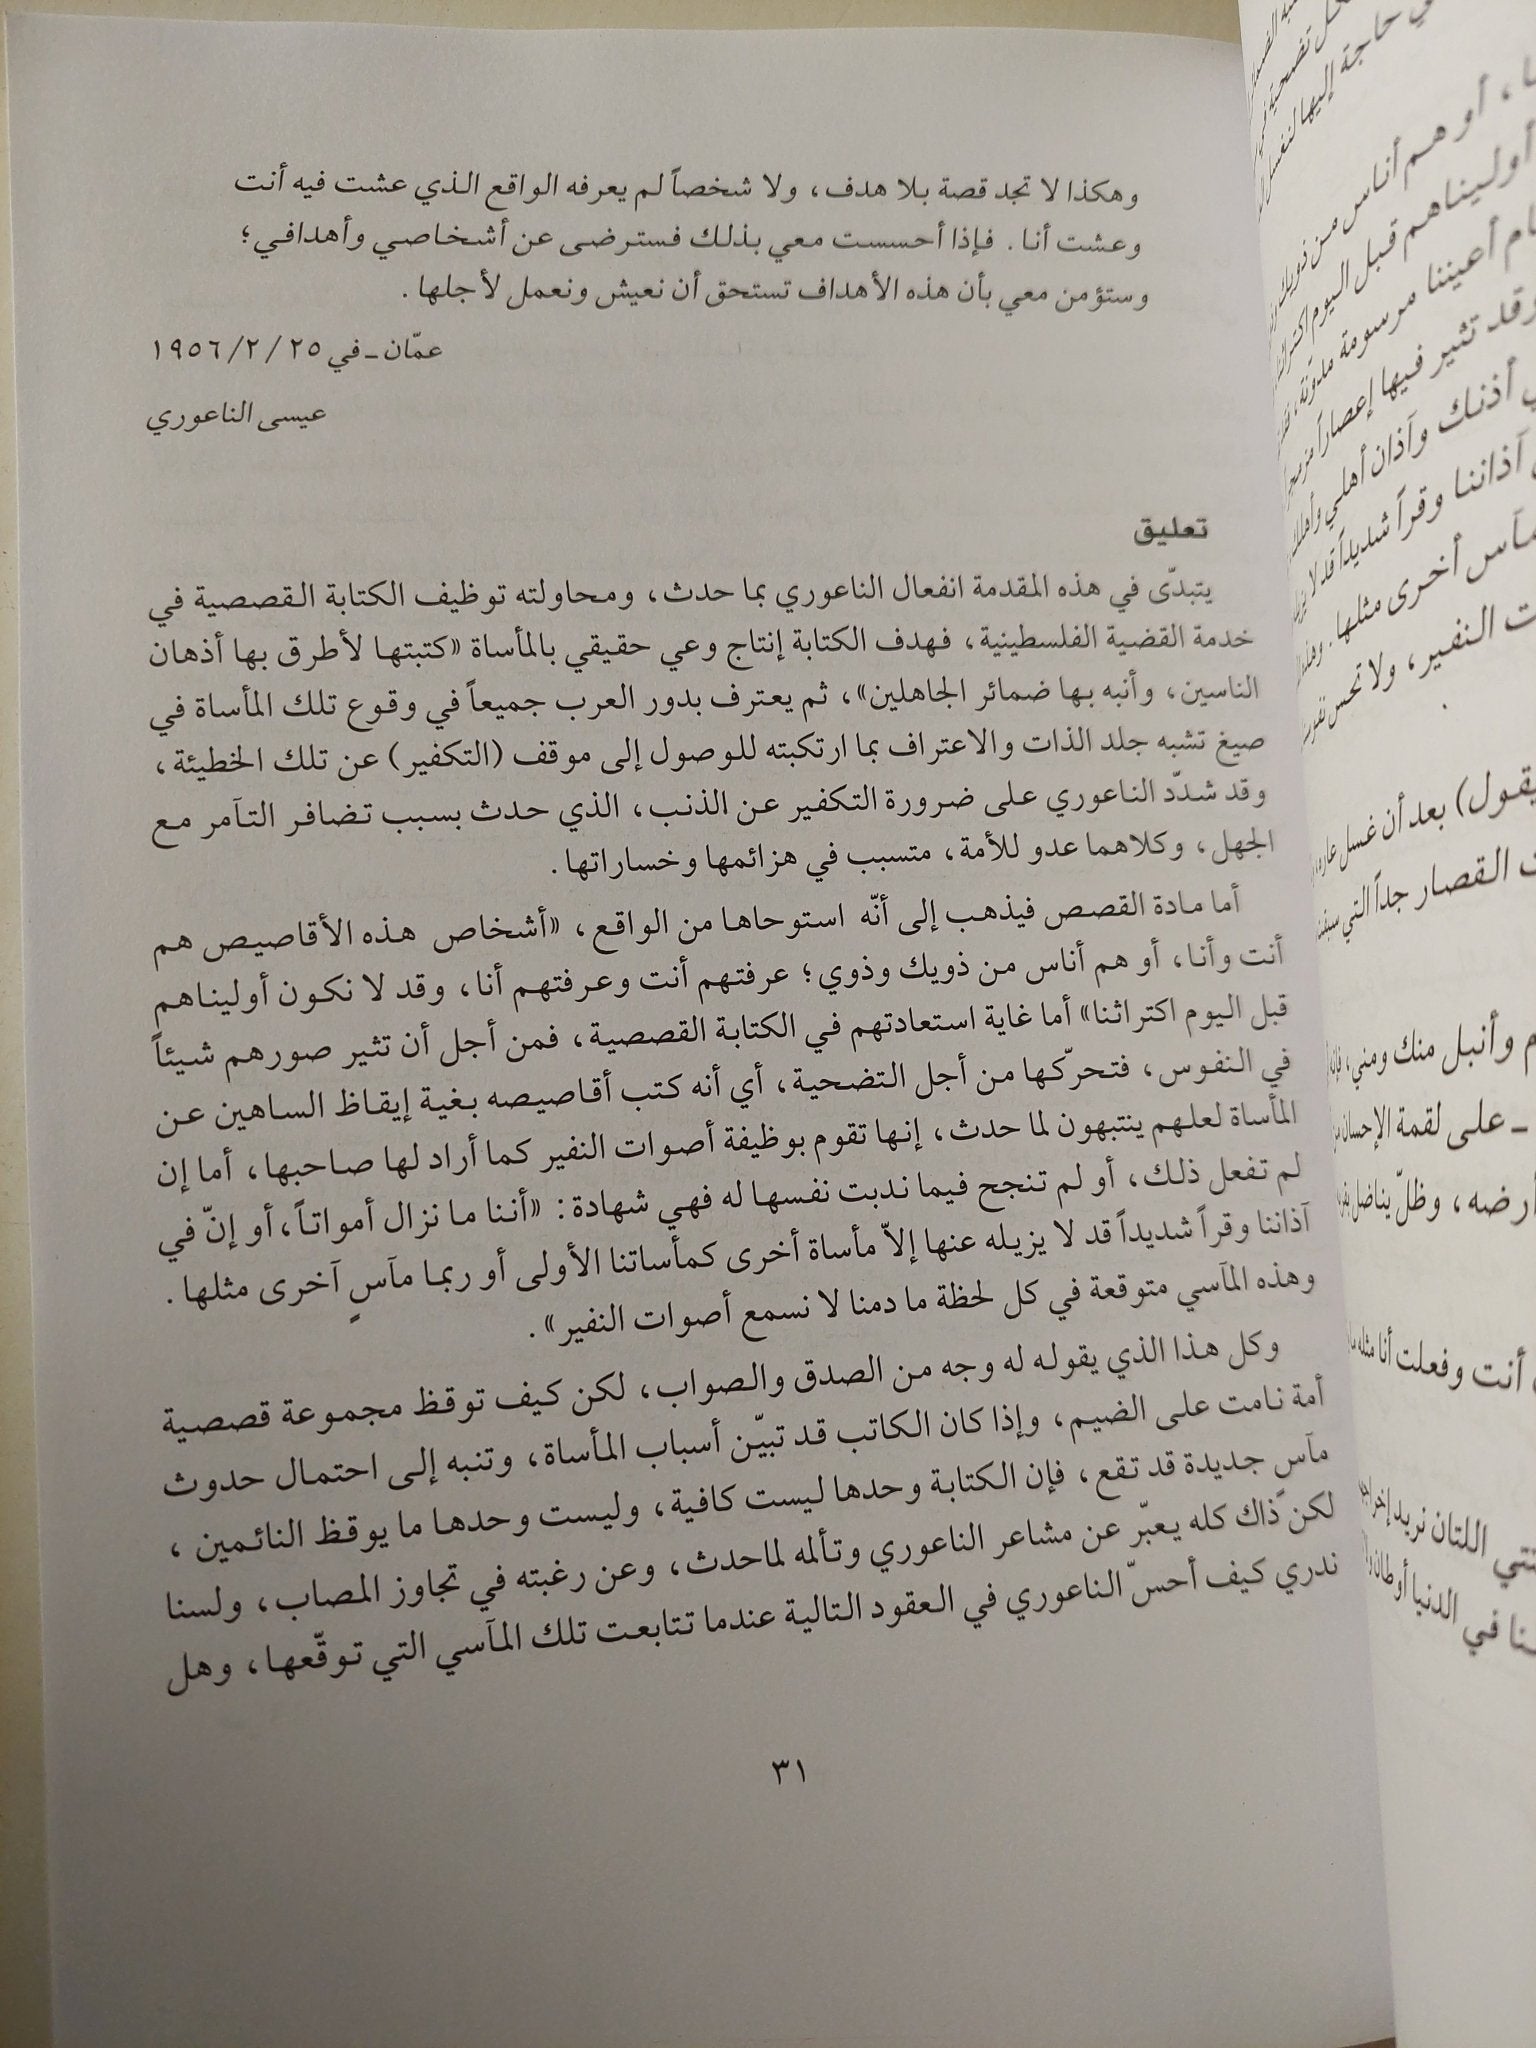 وهكذا لا تجد قصة بلا هدف، ولا شخصاً لم يعرفه الواقع الذي عشت فيه أنت
وعشت أنا. فإذا أحسست معي بذلك فسترضى عن أشخاصي وأهدافي؛
وستؤمن معي بأن هذه الأهداف تستحق أن نعيش ونعمل لأجلها.
عمّان ـ في ٢٥ /٢/ ١٩٥٦
عيسى الناعوري
تعليق
يتبدّى في هذه المقدمة انفعال الناعوري بما حدث، ومحاولته توظيف الكتابة القصصية في
خدمة القضية الفلسطينية، فهدف الكتابة إنتاج وعي حقيقي بالمأساة «كتبتها لأطرق بها أذهان
الناسين، وأنبه بها ضمائر الجاهلين»، ثم يعترف بدور العرب جميعاً في وقوع تلك المأساة في
صيغ تشبه جلد الذات والاعتراف بما ارتكبته للوصول إلى موقف (التكفير) عن تلك الخطيئة،
وقد شدّد الناعوري على ضرورة التكفير عن الذنب، الذي حدث بسبب تضافر التآمر مع
الجهل، وكلاهما عدو للأمة، متسبب في هزائمها وخساراتها.
أما مادة القصص فيذهب إلى أنّه استوحاها من الواقع، «أشخاص هذه الأقاصيص هم
أنت وأنا، أو هم أناس من ذويك وذوي؛ عرفتهم أنت وعرفتهم أنا، وقد لا نكون أوليناهم
قبل اليوم اكتراثنا» أما غاية استعادتهم في الكتابة القصصية، فمن أجل أن تثير صورهم شيئاً
في النفوس، فتحرّكها من أجل التضحية، أي أنه كتب أقاصيصه بغية إيقاظ الساهين عن
المأساة لعلهم ينتبهون لما حدث، إنها تقوم بوظيفة أصوات النفير كما أراد لها صاحبها، أما إن
لم تفعل ذلك، أو لم تنجح فيما ندبت نفسها له فهي شهادة: «أننا ما نزال أمواتاً، أو إنّ في
آذاننا وقراً شديداً قد لا يزيله عنها إلاّ مأساة أخرى كمأساتنا الأولى أو ربما مآسٍ آخرى مثلها.
وهذه المآسي متوقعة في كل لحظة ما دمنا لا نسمع أصوات النفير».
وكل هذا الذي يقوله له وجه من الصدق والصواب، لكن كيف توقظ مجموعة قصصية
أمة نامت على الضيم، وإذا كان الكاتب قد تبيّن أسباب المأساة، وتنبه إلى احتمال حدوث
مآسٍ جديدة قد تقع، فإن الكتابة وحدها ليست كافية، وليست وحدها ما يوقظ النائمين،
لكن ذاك كله يعبّر عن مشاعر الناعوري وتألمه لماحدث، وعن رغبته في تجاوز المصاب، ولسنا
ندري كيف أحسّ الناعوري في العقود التالية عندما تتابعت تلك المآسي التي توقّعها، وهل
٣١
ي حاجة إليها لنغسل
أو هم أناس من ذويك
أوليناهم قبل اليوم
أعيننا مرسومة ملوّنة،
وقد تثير فيها إعصاراً
أذنك وآذان أهلي
آذاننا وقراً شديداً قد لا
مآس أخرى مثلها.
النفير، ولا تحس
يقول) بعد أن غسل
القصار جداً التي
وأنبل منك ومني،
ـ على لقمة الإحسان
أرضه، وظلّ يناضل
أنت وفعلت أنا مثله
اللتان نريد
في الدنيا